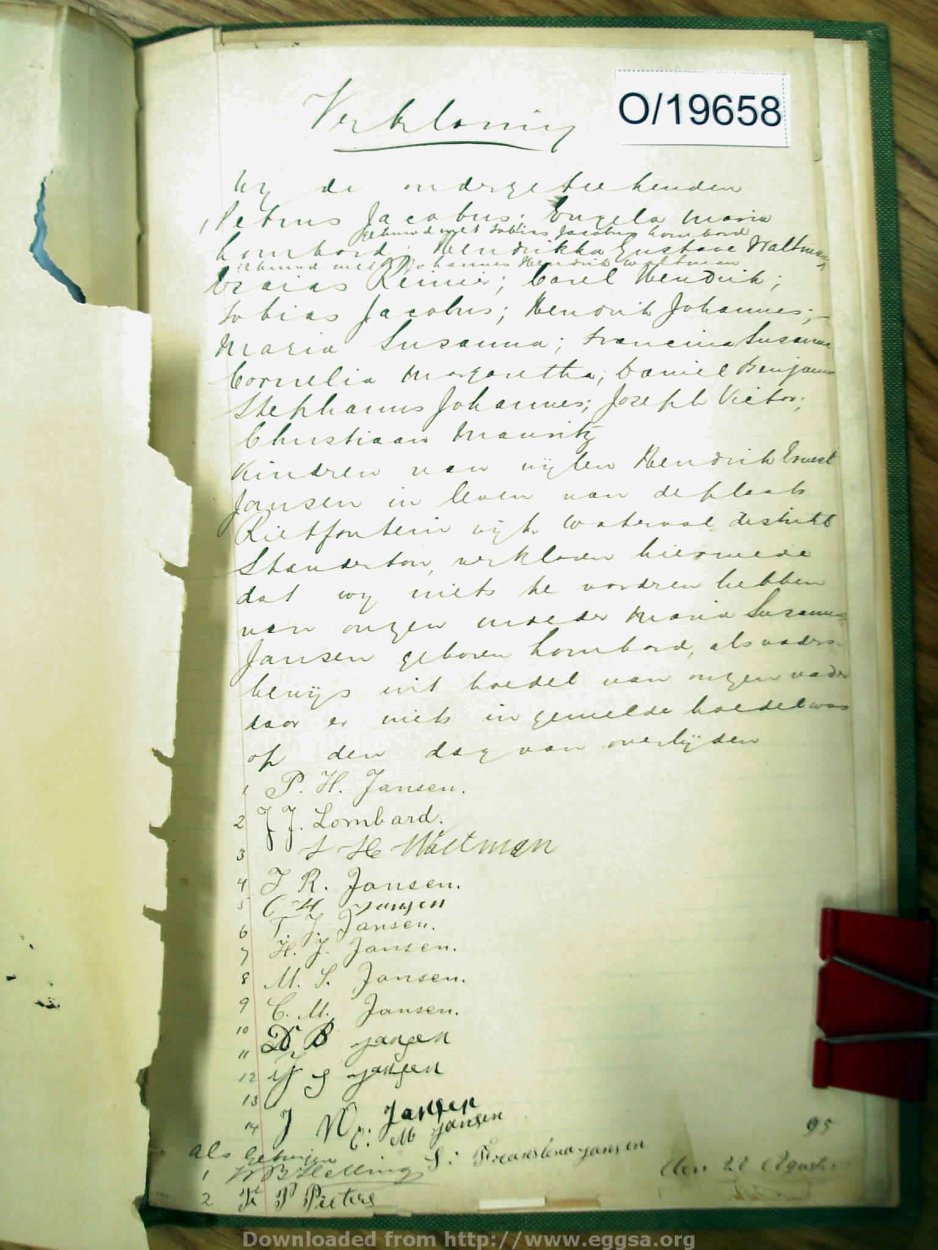 O/19658
Verklaring
Wy de ondergeteekenden
Petrus Jacobus; Engela Maria
gehuwd met Tobias Jacobus Lombard
Lombard; Hendrikka Gustave Waltman
gehuwd met Johannes Hendrik Waltman
Izaias Reinier; Carel Hendrik;
Tobias Jacobus; Hendrik Johannes;
Maria Susanna; Francina Susanna
Cornelia Margaretha; Daniel Benjamin
Stephanus Johannes; Joseph Victor;
Christiaan Mauritz
Kinderen van wijlen Hendrik Ernest
Jansen in leven van de plaats
Rietfontein wijk Waterval distrikt
Standerton, verklaren hiermede
dat wy niets te vorderen hebben
van onzen moeder Maria Susanna
Jansen geboren Lombard, als vaders
bewijs uit boedel van onzen vader
daar er niets in gemelde boedel was
op den dag van overlijden
1 P. H. Jansen.
2 J. J. Lombard.
3 J H Waltman
4 J R. Jansen.
5 C H Jansen
6 T. J. Jansen.
7 H. J. Jansen.
8 M. S. Jansen.
9 C. M. Jansen.
10 D B Jansen
11
12 S J Jansen
13
14 J V. Jansen
C. M Jansen
Als getuigen
S: Fransiena Jansen
1 W B Helling
den 22 Agusts 95
2 F P Pieters
Downloaded from http://www.eggsa.org